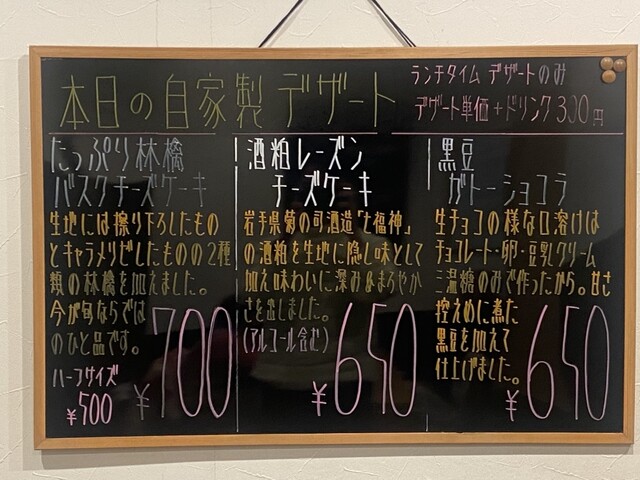 本日の自家製デザート
ランチタイム デザートのみ
デザート単価+ドリンク330円
たっぷり林檎
バスクチーズケーキ
生地には擦り下ろしたもの
とキャラメリゼしたものの2種
類の林檎を加えました。
今が旬ならでは
のひと品です。
ハーフサイズ
¥500
¥700
酒粕レーズン
チーズケーキ
岩手県菊の司酒造「七福神」
の酒粕を生地に隠し味として
加え味わいに深み&まろやか
さを出しました。
(アルコール含む)
¥650
黒豆
ガトーショコラ
生チョコの様な口溶けは
チョコレート・卵・豆乳クリーム
三温糖のみで作ったから。甘さ
控えめに煮た
黒豆を加えて
仕上げました。
¥650